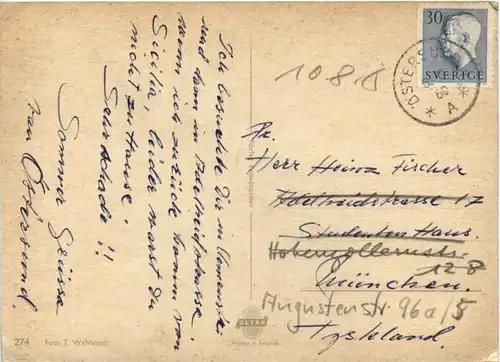 Ich besuchte Dir in
und dann in Adelheidstrasse.
wenn ich zurück kamm von
Sicilia, leider warst Du
nicht zu Hause!
Sehr schade!!
Sommar Grüsse
von Östersund.
274 Foto T. Wahlstedt
30
SVERIGE
ÖSTERSUND
A
108
Herr Heinz Fischer
Adelheidstrasse 17
Studenten Haus.
Hohenzollernstr.
128
München.
Augustenstr. 96a/5
Tyskland.
ULTRA